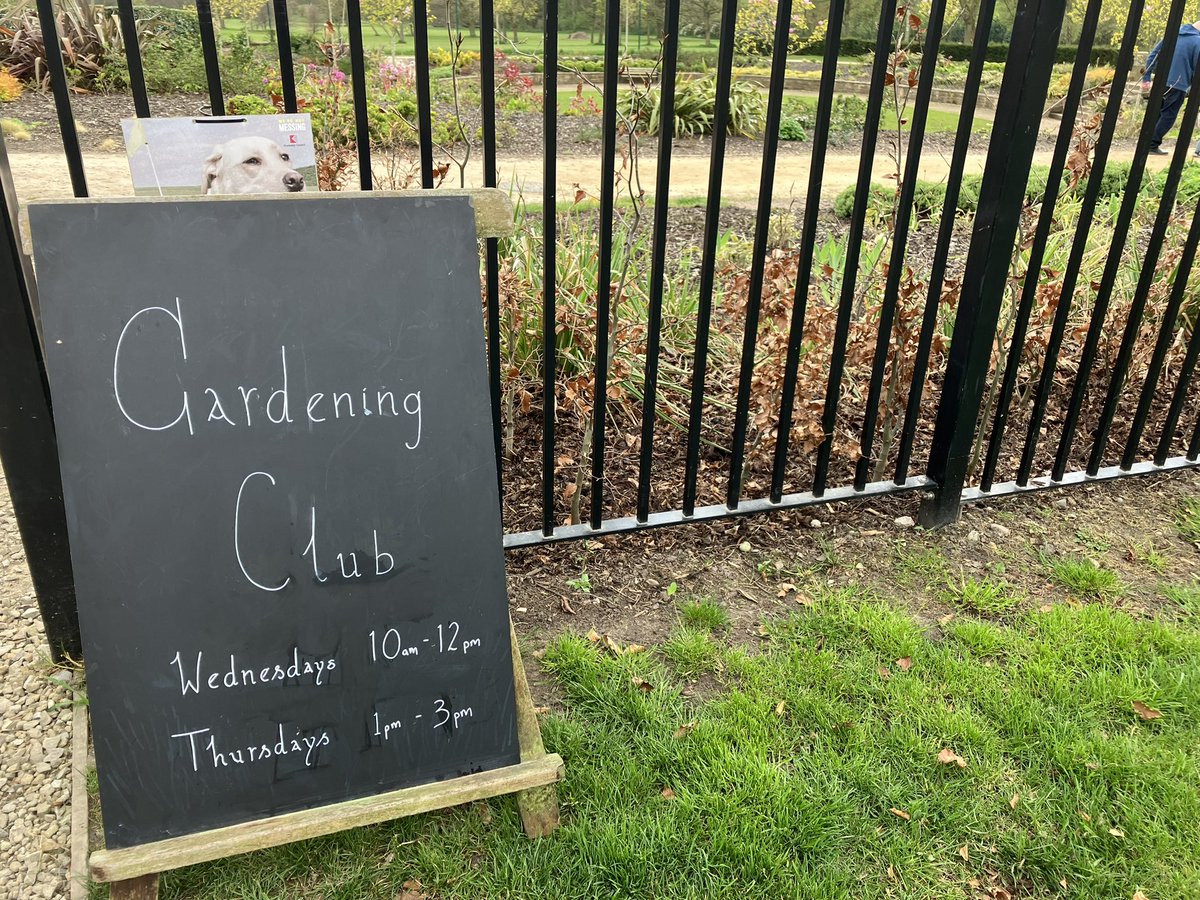 WE'RE NOT
MESSING
Gardening
Club
Wednesdays 10am - 12pm
Thursdays 1pm - 3pm